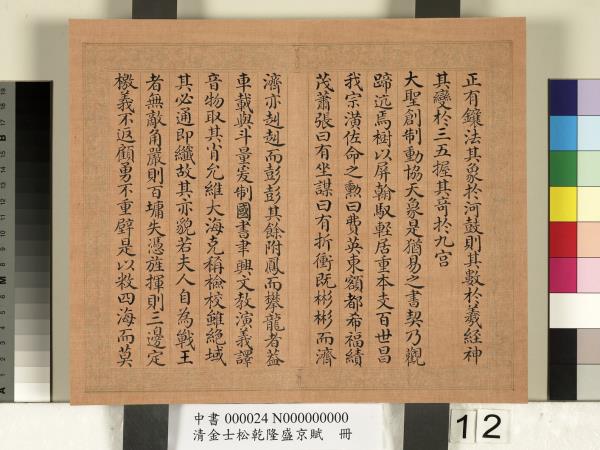 正有鑊法其象於河鼓則其數於羲經神
其變於三五握其奇於九宮
大聖創制動協天象是猶易之書契乃觀
蹄迒焉樹以屏翰馭輕居重本支百世昌
我宗潢佐命之勲曰費英東額都希福績
茂蕭張曰有坐謀曰有折衝既彬彬而濟
濟亦赳赳而彭彭其餘附鳳而攀龍者葢
車載與斗量爰制國書聿興文教演義譯
音物取其肖允維大海克稱檢校雖絕域
其必通即纖故其亦貌若夫人自為戰王
者無敵角嚴則百墉失憑旌揮則三邊定
檄義不返顧勇不重躄是以敉四海而莫
中書 000024 N000000000
清金士松乾隆盛京賦 冊
12